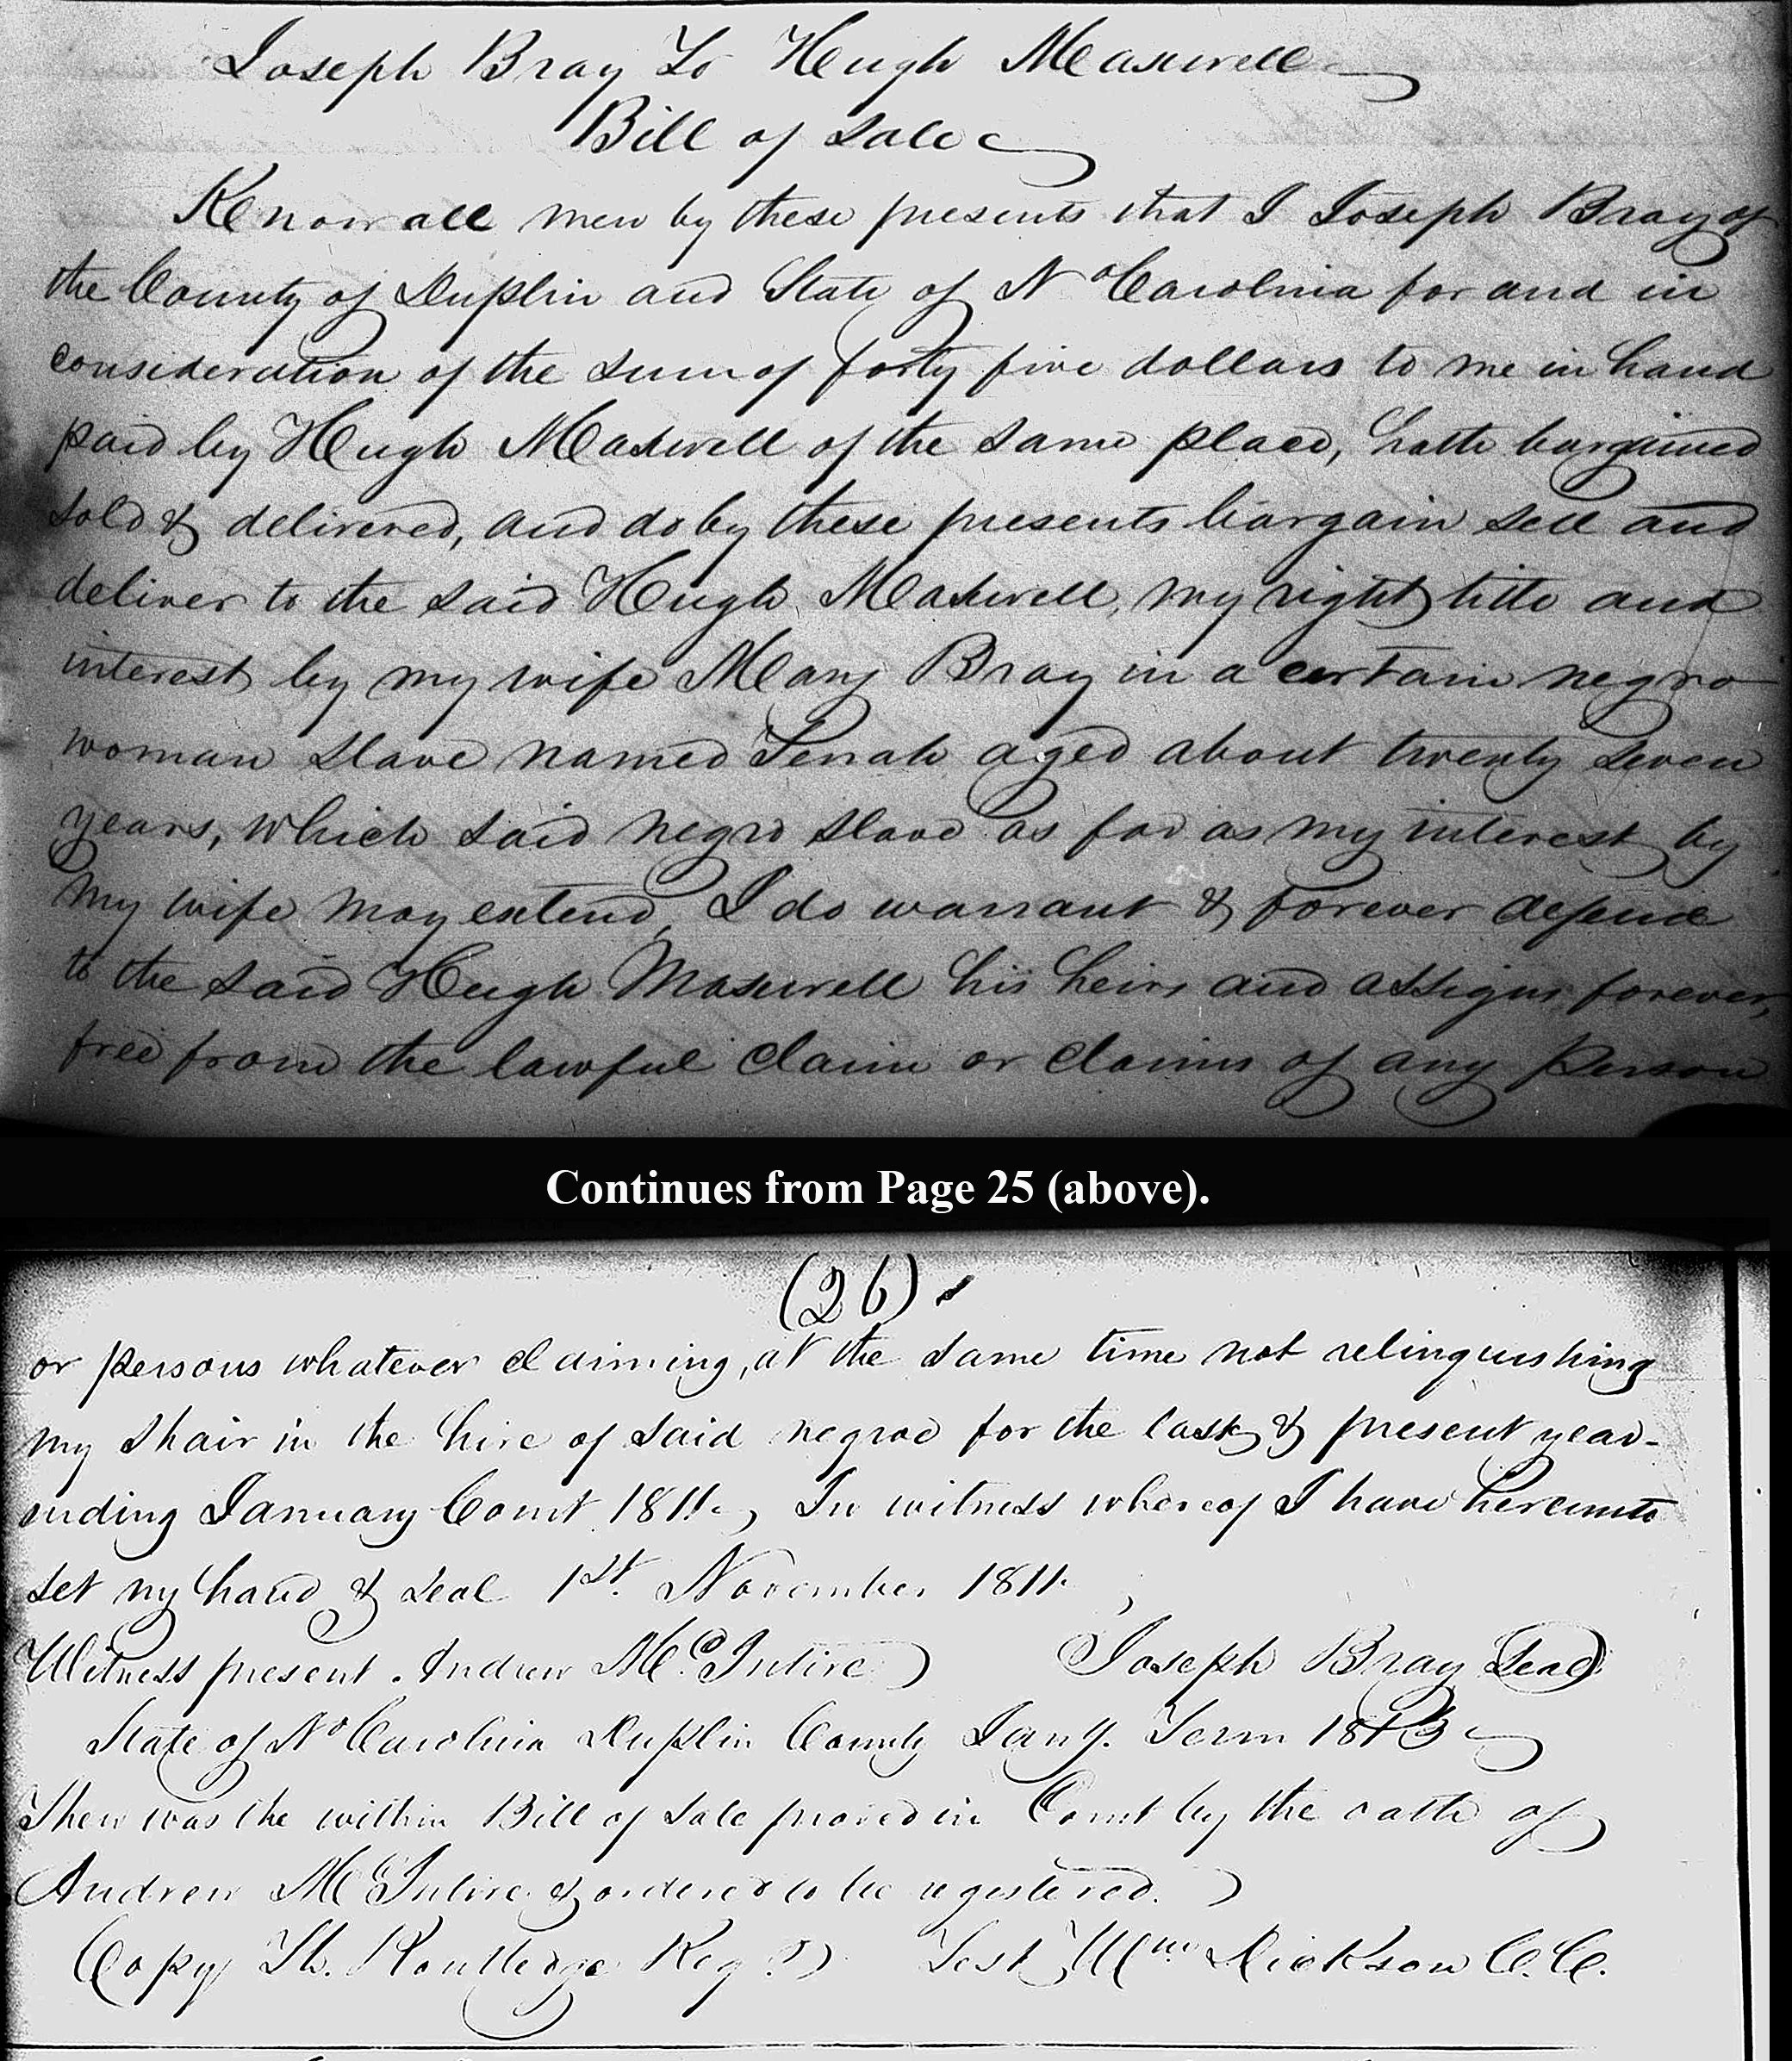 Joseph Bray To Hugh Maxwell
Bill of Sale
Know all men by these presents that I Joseph Bray of
the County of Duplin and State of No Carolina for and in
consideration of the sum of forty five dollars to me in hand
paid by Hugh Maxwell of the same place, hath bargained
sold & delivered, and do by these presents bargain sell and
deliver to the said Hugh Maxwell, my right title and
interest by my wife Mary Bray in a certain negro
woman slave named Penah aged about twenty seven
years, which said negro slave as far as my interest by
my wife may extend, I do warrant & forever defend
to the said Hugh Maxwell his heirs and assigns forever,
free from the lawful claim or claims of any person
Continues from Page 25 (above).
(26)
or persons whatever claiming, at the same time not relinquishing
my shair in the hire of said negroe for the last & present year-
ending January Court 1811, In witness whereof I have hereunto
set my hand & seal 1st. November 1811.
Witness present. Andrew McIntire Joseph Bray Seal
State of No Carolina Duplin County Jany. Term 1813
Then was the within Bill of Sale proved in Court by the oath of
Andrew McIntire & ordered to be registered.
Copy Th. Routledge Reg. Test Wm Dickson C.C.